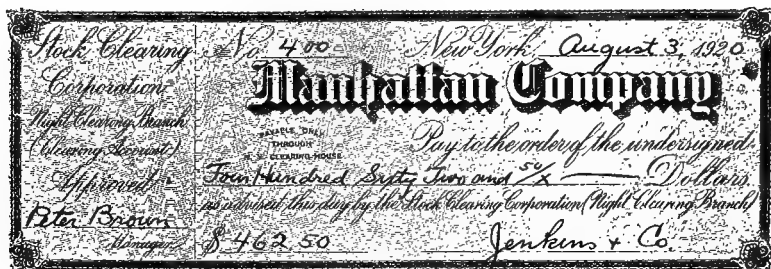 Stock Clearing
Corporation
Night Clearing Branch
(Clearing Account)
Approved
Peter Brown
Manager
No. 400 New York August 3, 1920
Manhattan Company
PAYABLE ONLY
THROUGH
N. Y. CLEARING HOUSE
Pay to the order of the undersigned
Four Hundred Sixty Two and 50/x Dollars
as advised this day by the Stock Clearing Corporation (Night Clearing Branch)
$ 462 50 Jenkins + Co.